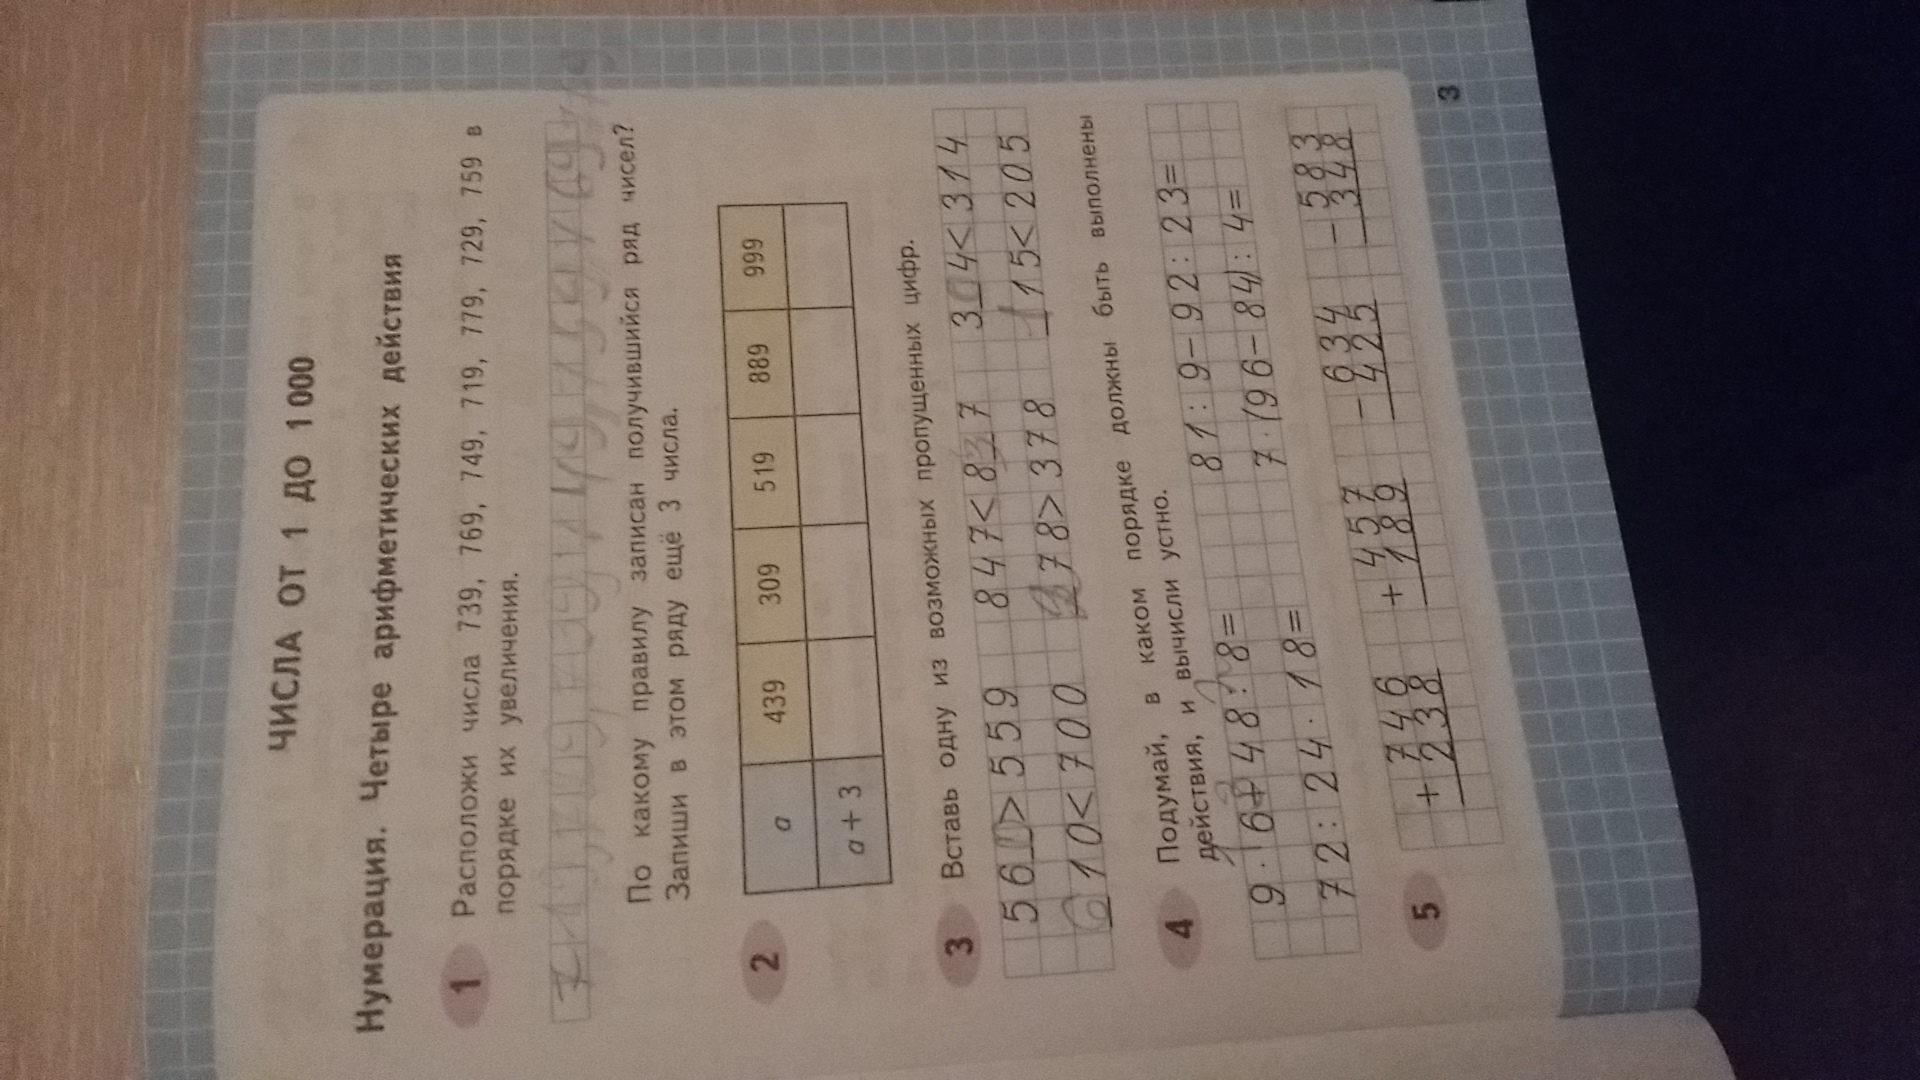 ЧИСЛА ОТ 1 ДО 1 000
Нумерация. Четыре арифметических действия
1 Расположи числа 739, 769, 749, 719, 779, 729, 759 в
порядке их увеличения.
По какому правилу записан получившийся ряд чисел?
Запиши в этом ряду ещё 3 числа.
2
a 439 309 519 889 999
a + 3
3 Вставь одну из возможных пропущенных цифр.
56_>559 847<837 304<314
610<700 _78>378 115<205
4 Подумай, в каком порядке должны быть выполнены
действия, и вычисли устно.
9·6+48:8= 81:9–92:23=
72:24·18= 7·(96–84):4=
5
+ 746 + 457 – 634 – 583
238 189 425 348
3